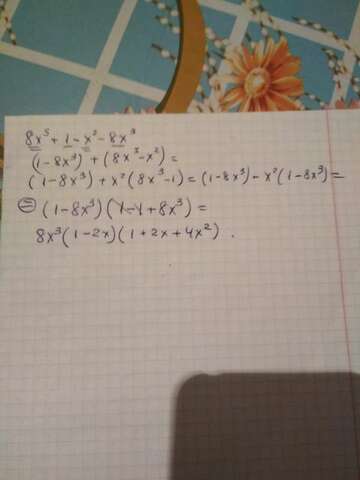 8x⁵ + 1 - x² - 8x³
(1-8x³) + (8x⁵-x²) =
(1-8x³) + x²(8x³-1) = (1-8x³) - x²(1-8x³) =
= (1-8x³)(1-1+8x³) =
8x³(1-2x)(1+2x+4x²).